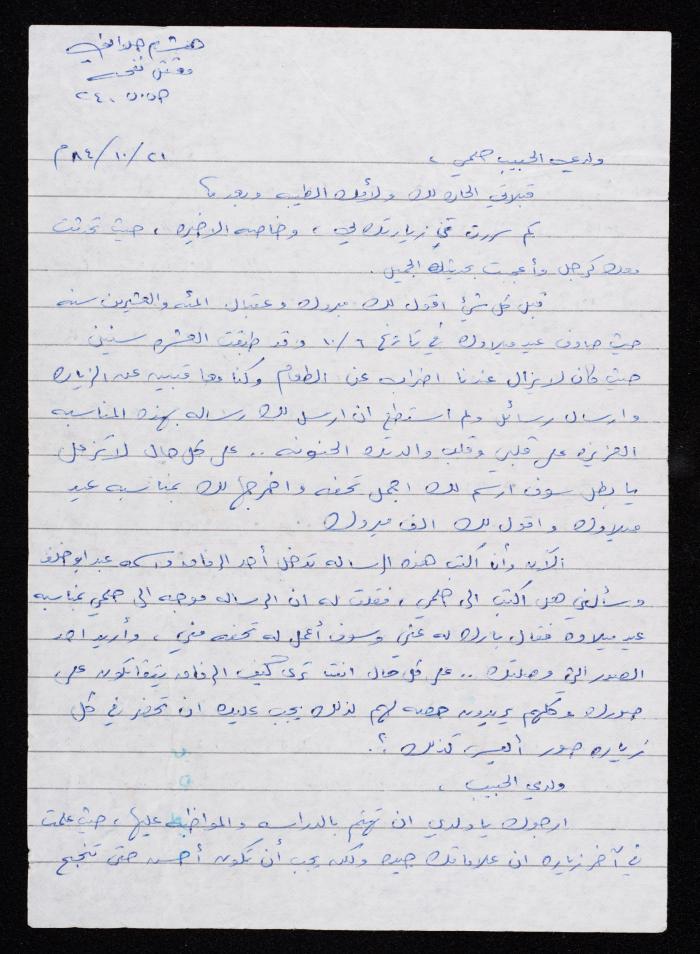 معتقل نفحة
٨٤/١٠/٢١م
ولدي الحبيب حلمي ،
قبلاتي الحاره لك ولأمك الطيبه وبعد ها
كم سررت في زيارتك لي ، وخاصه الاخيره ، حيث تحدثت
معك كرجل وأعجبت بحديثك الجميل .
قبل كل شيئ اقول لك مبروك وعقبال المئه والعشرين سنه
حيث صادف عيد ميلادك في تاريخ ١٠/٦ وقد طبقت العشره سنين
حيث كان لا يزال عندنا اضراب عن الطعام وكنا معاقبين عن الزياره
وارسال رسائل ولم استطع ان ارسل لك رساله بهذه المناسبه
العزيزه على قلبي وقلب والدتك الحنونه .. على كل حال لا تزعل
يا بطل سوف ارسم لك اجمل تحفه واخرجها لك بمناسبه عيد
ميلادك واقول لك الف مبروك
الآن وأنا أكتب هذه الرساله تدخل أحد الرفاق واسمه عبد ابو خلف
وسألني هل اكتب الى حلمي ، فقلت له ان الرساله موجه الى حلمي بمناسبه
عيد ميلاده فقال بارك له عني وسوف أعمل له تحفه مني ، وأريد احد
الصور التي وصلتك .. على كل حال انت ترى كيف الرفاق يتقاتلون على
صورك وكلهم يريدون حصه لهم لذلك يجب عليك ان تحضر في كل
زياره صور أليس كذلك ؟.
ولدي الحبيب ،
ارجوك يا ولدي ان تهتم بالدراسه والمواظبه عليها ، حيث علمت
في آخر زياره ان علاماتك جيده ولكن يجب أن تكون أحسن حتى تنجح